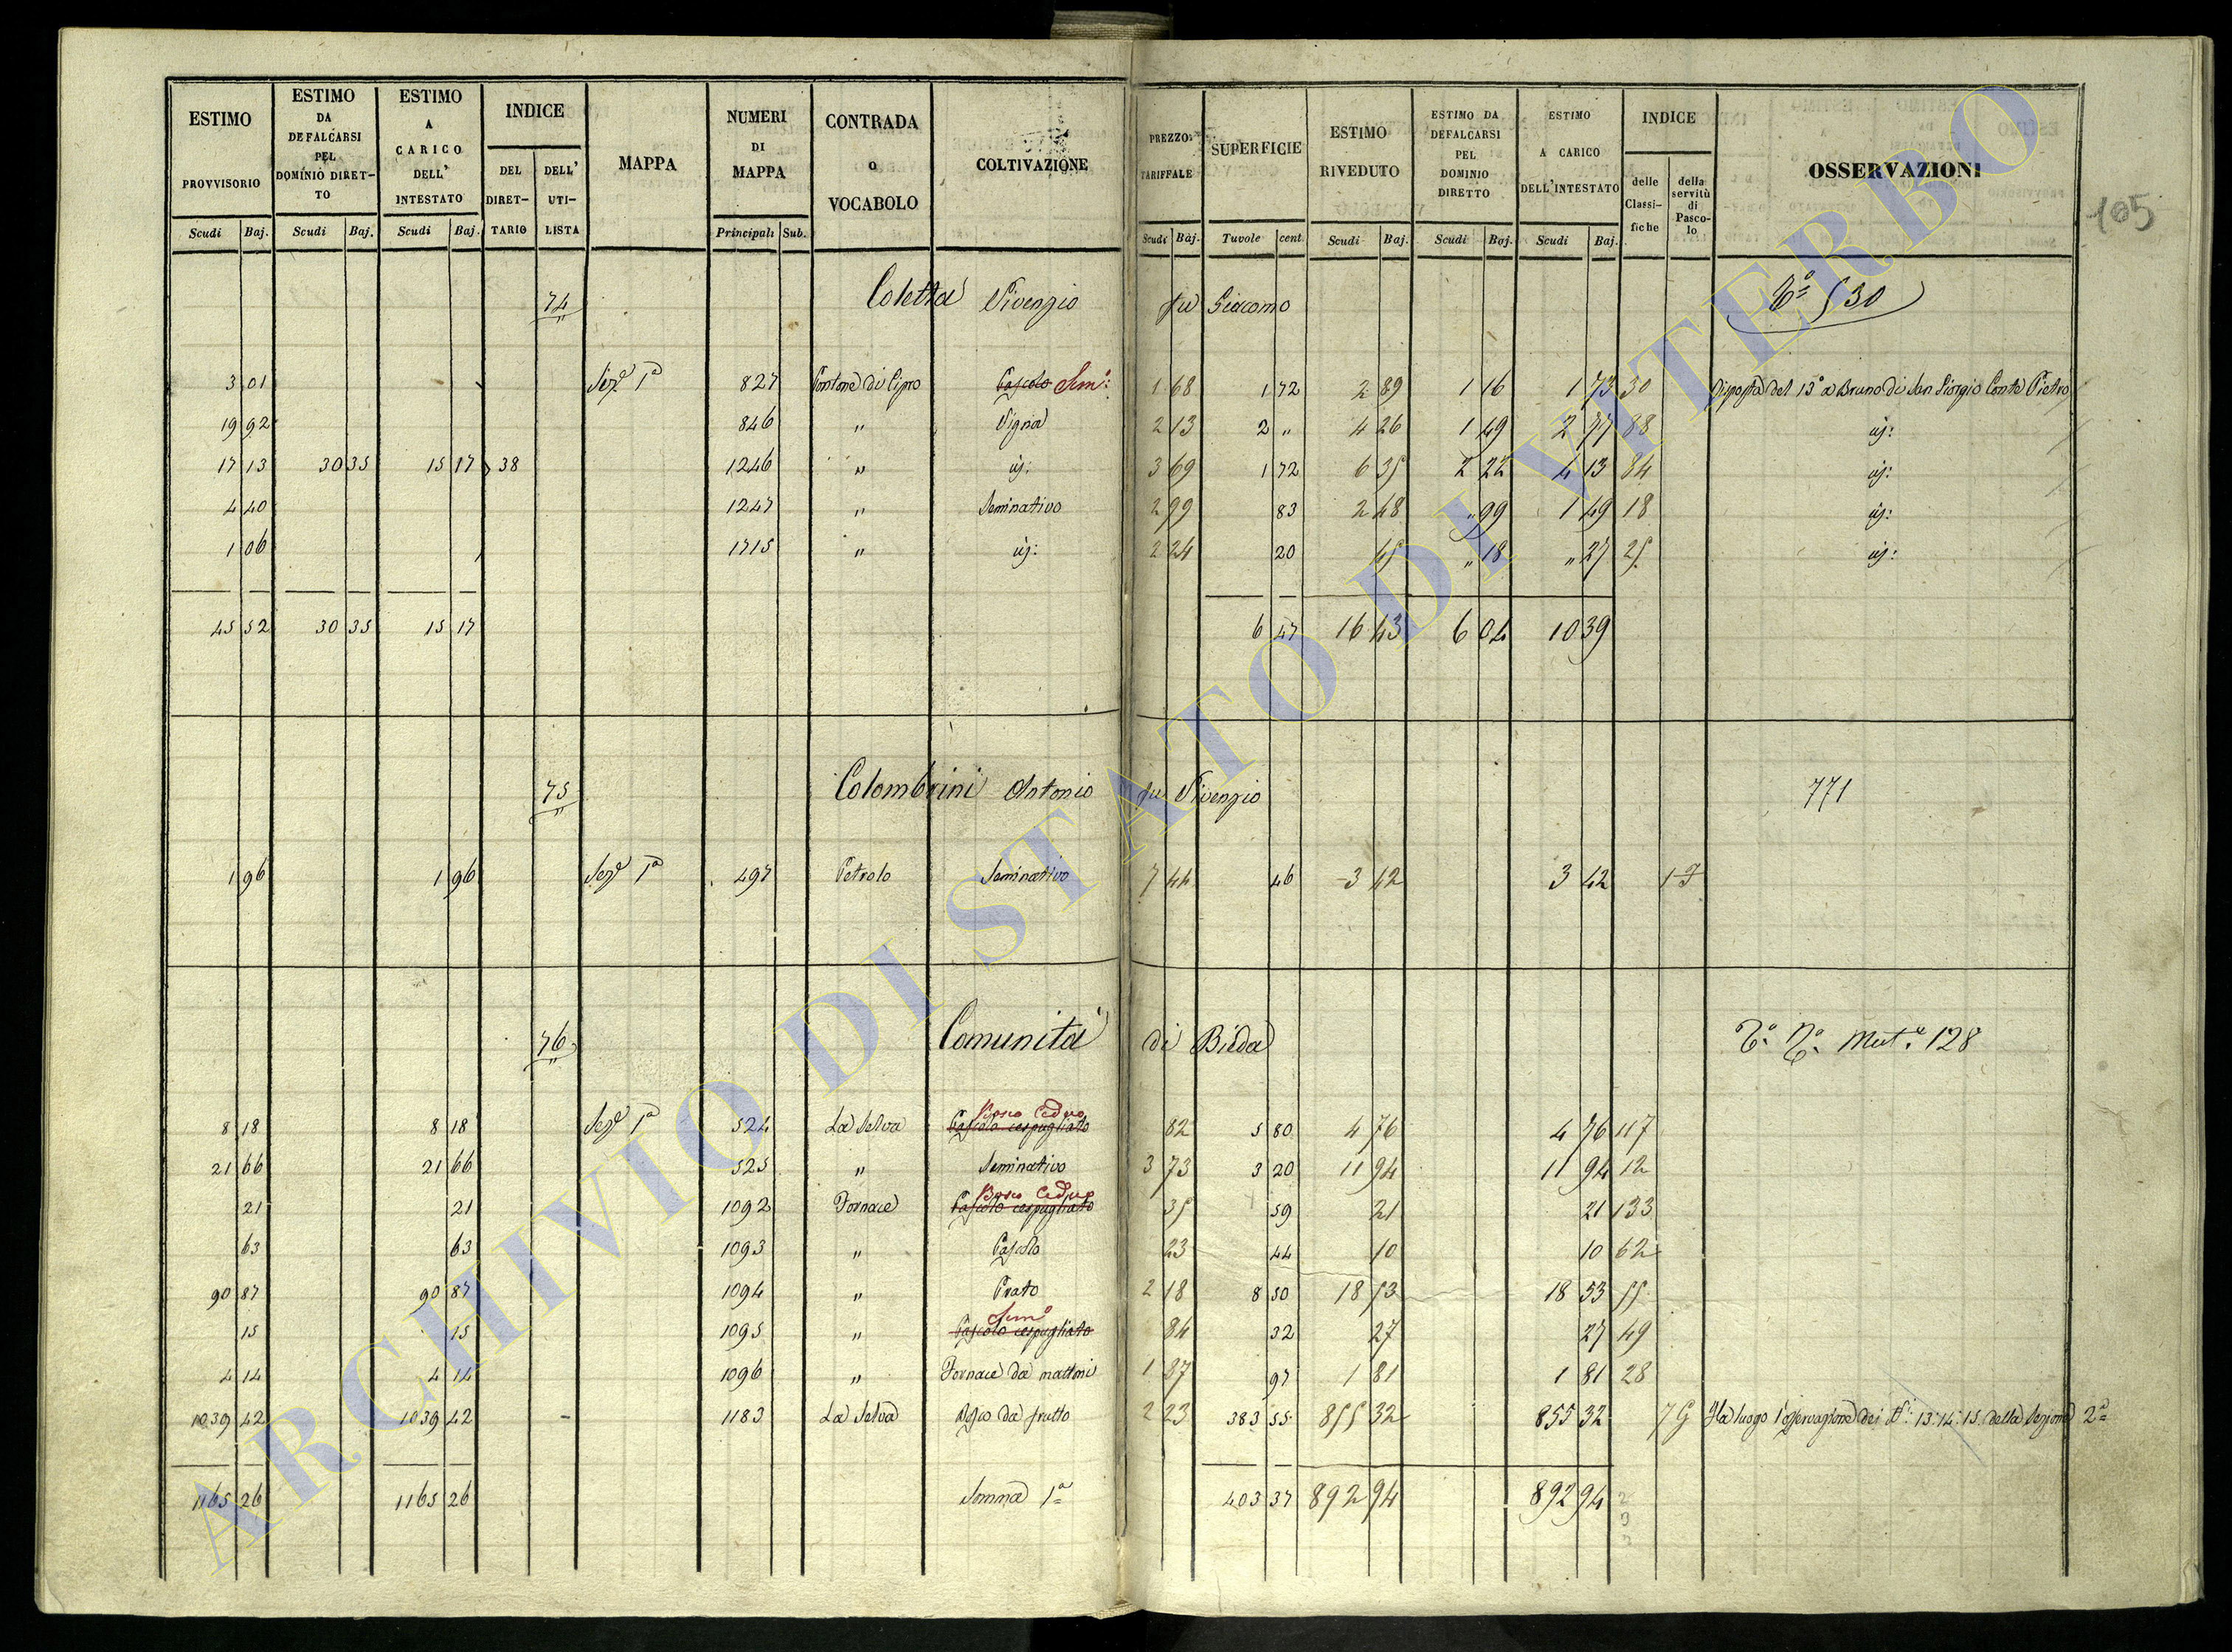 ESTIMO PROVVISORIO Scudi Baj.
ESTIMO DA DEFALCARSI PEL DOMINIO DIRETTO Scudi Baj.
ESTIMO A CARICO DELL' INTESTATO Scudi Baj.
INDICE DEL DIRETTARIO DELL' UTILISTA
MAPPA
NUMERI DI MAPPA Principali Sub.
CONTRADA o VOCABOLO
COLTIVAZIONE
PREZZO TARIFFALE Scudi Baj.
SUPERFICIE Tavole cent.
ESTIMO RIVEDUTO Scudi Baj.
ESTIMO DA DEFALCARSI PEL DOMINIO DIRETTO Scudi Baj.
ESTIMO A CARICO DELL'INTESTATO Scudi Baj.
INDICE delle Classifiche della servitù di Pascolo
OSSERVAZIONI
105
74 Coletta Vivenzio fu Giacomo 530
3 01 Sez.e 1a 827 Pontone di Cipro Pascolo Sem: 1 68 1 72 2 89 1 16 1 73 30 Disposta del 13° a Bruno di San Giorgio Conte Pietro
19 92 846 " Vigna 2 13 2 " 4 26 1 49 2 77 88 id:
17 13 30 35 15 17 38 1246 " id: 3 69 1 72 6 35 2 22 4 13 84 id:
4 40 1247 " Seminativo 2 99 83 2 48 " 99 1 49 18 id:
1 06 1715 " id: 2 24 20 45 " 18 " 27 25 id:
45 52 30 35 15 17 6 47 16 43 6 04 10 39
75 Colombrini Antonio fu Vivenzio 771
1 96 1 96 Sez.e 1a 497 Petrolo Seminativo 7 44 46 3 42 3 42 1
76 Comunità di Bieda Mut.e 128
8 18 8 18 Sez.e 1a 524 La Selva Pascolo cespugliato Bosco Ceduo 82 5 80 4 76 4 76 117
21 66 21 66 525 " Seminativo 3 73 3 20 11 94 11 94 12
21 21 1092 Fornace Pascolo cespugliato Bosco Ceduo 35 59 21 21 133
63 63 1093 " Pascolo 23 44 10 10 62
90 87 90 87 1094 " Prato 2 18 8 50 18 53 18 53 55
15 15 1095 " Pascolo cespugliato Sem.o 84 32 27 27 49
4 14 4 14 1096 " Fornace da mattoni 1 87 97 1 81 1 81 28
1039 42 1039 42 1183 La Selva da frutto 2 23 383 55 855 32 855 32 7 G Ha luogo l'osservazione dei N.i 13. 14. 15. della Sezione 2a
1165 26 1165 26 Somma 1a 403 37 892 94 892 94
ARCHIVIO DI STATO DI VITERBO